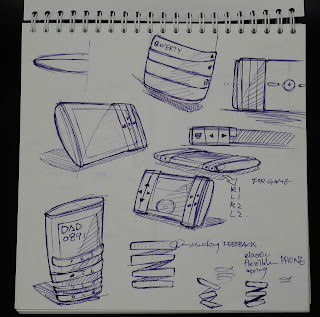 QWERTY
FOR GAME.
R1
L1
R2
L2
DAD
089
FEEDBACK.
elastic
flexible PHONE
spring